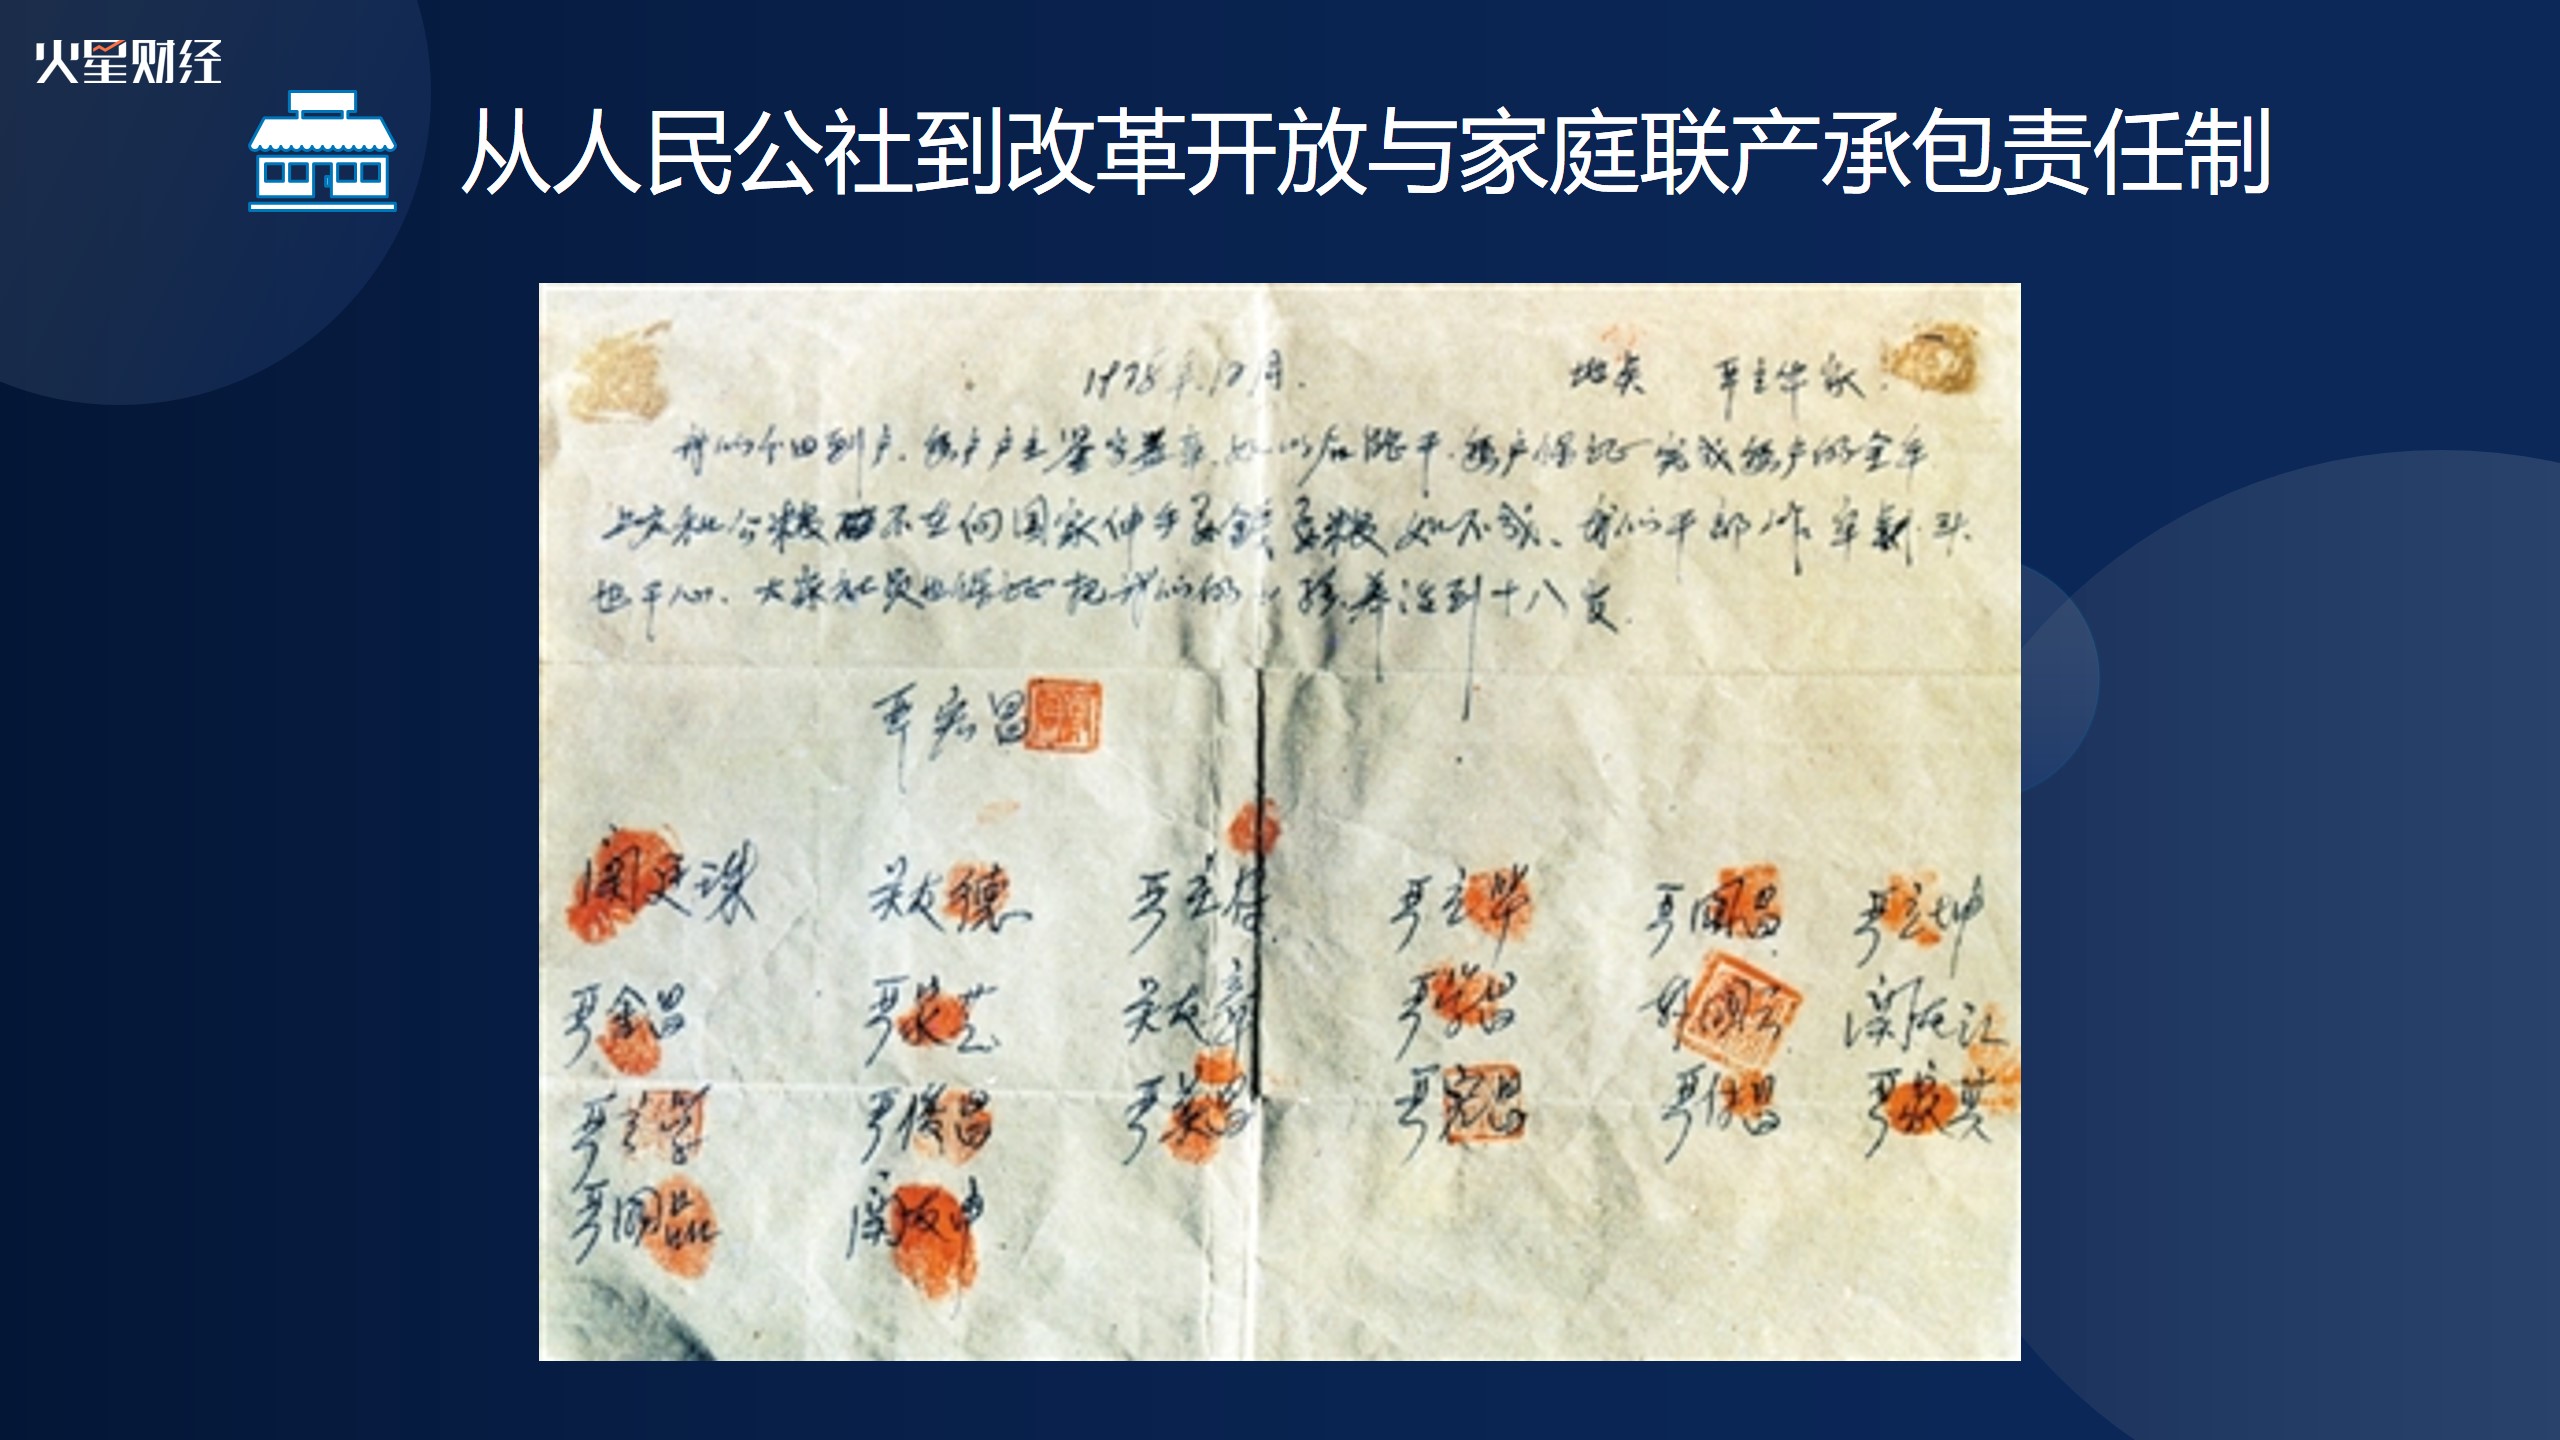 火星财经
从人民公社到改革开放与家庭联产承包责任制
1978年12月. 地点 严立华家.
我们分田到户.每户户主签字盖章.如以后能干.每户保证完成每户的全年
上交和公粮不在向国家伸手要钱要粮如不成、我们干部作牢杀头
也干心、大家社员也保证把我们的小孩养活到十八岁.
严宏昌
关廷珠 关友德 严立符 严立华 严国昌 严立坤
严金昌 严家芝 关友章 严学昌 韩国云 关友江
严立学 严俊昌 严美昌 严宏昌 严付昌 严家其
严国品 关友申